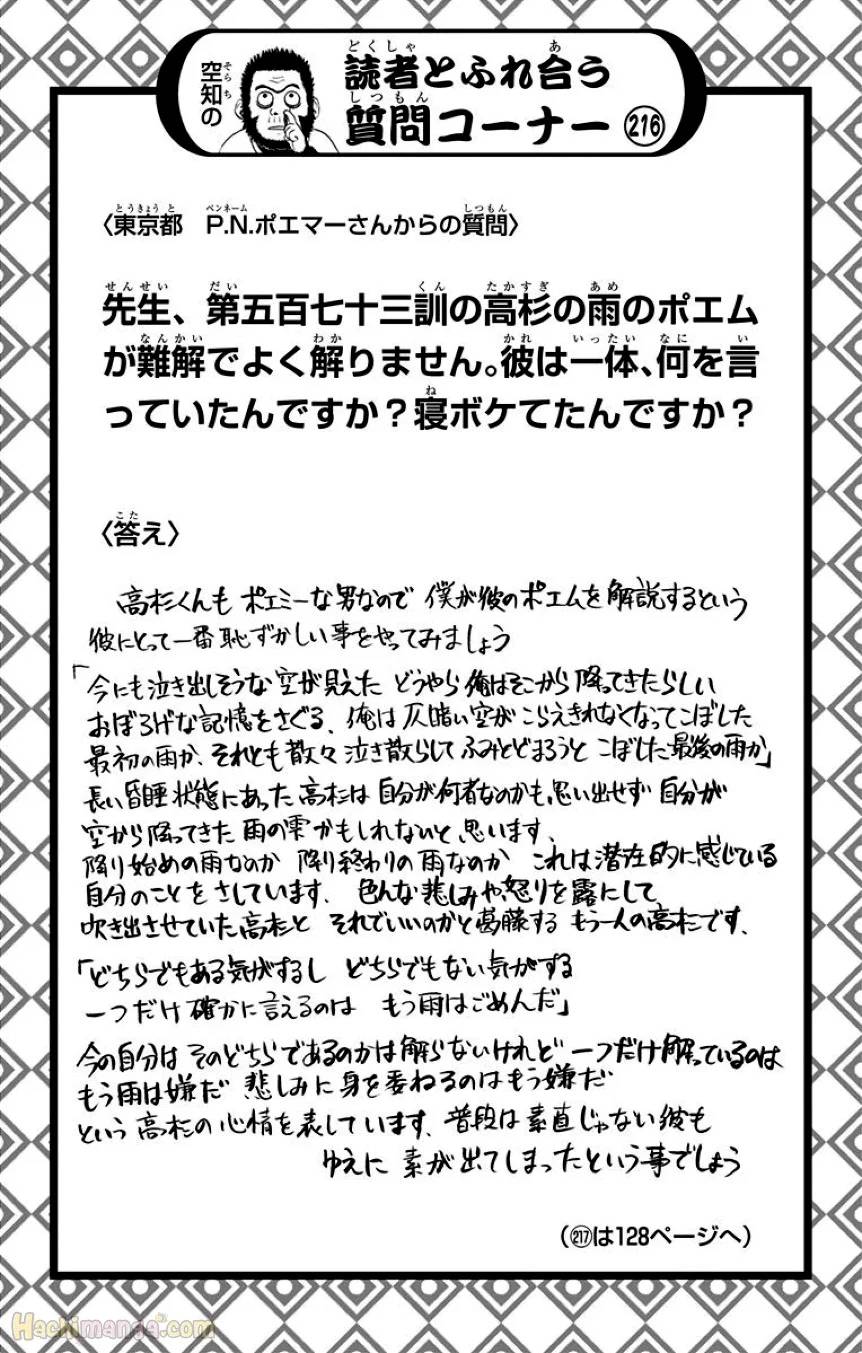 空知の
読者とふれ合う
質問コーナー 216
〈東京都 P.N.ポエマーさんからの質問〉
先生、第五百七十三訓の高杉の雨のポエム
が難解でよく解りません。彼は一体、何を言
っていたんですか？寝ボケてたんですか？
〈答え〉
高杉くんも ポエミーな男なので 僕が彼のポエムを解説するという
彼にとって一番恥ずかしい事をやってみましょう
「今にも泣き出しそうな空が見えた どうやら俺はそこから降ってきたらしい
おぼろげな記憶をさぐる、俺は仄暗い空が こらえきれなくなってこぼした
最初の雨か、それとも散々泣き散らして ふみとどまろうと こぼした最後の雨か」
長い昏睡状態にあった高杉は 自分が何者なのかも思い出せず 自分が
空から降ってきた 雨の雫かもしれないと思います、
降り始めの雨なのか 降り終わりの雨なのか これは潜在的に感じている
自分のことをさしています、 色んな悲しみや怒りを露にして
吹き出させていた高杉と それでいいのかと葛藤する もう一人の高杉です、
「どちらでもある気がするし どちらでもない気がする
一つだけ確かに言えるのは もう雨はごめんだ」
今の自分は そのどちらであるのかは解らないけれど 一つだけ解っているのは
もう雨は嫌だ 悲しみに身を委ねるのはもう嫌だ
という高杉の心情を表しています、普段は素直じゃない彼も
ゆえに 素が出てしまったという事でしょう
（217は128ページへ）
Hachimanga.com